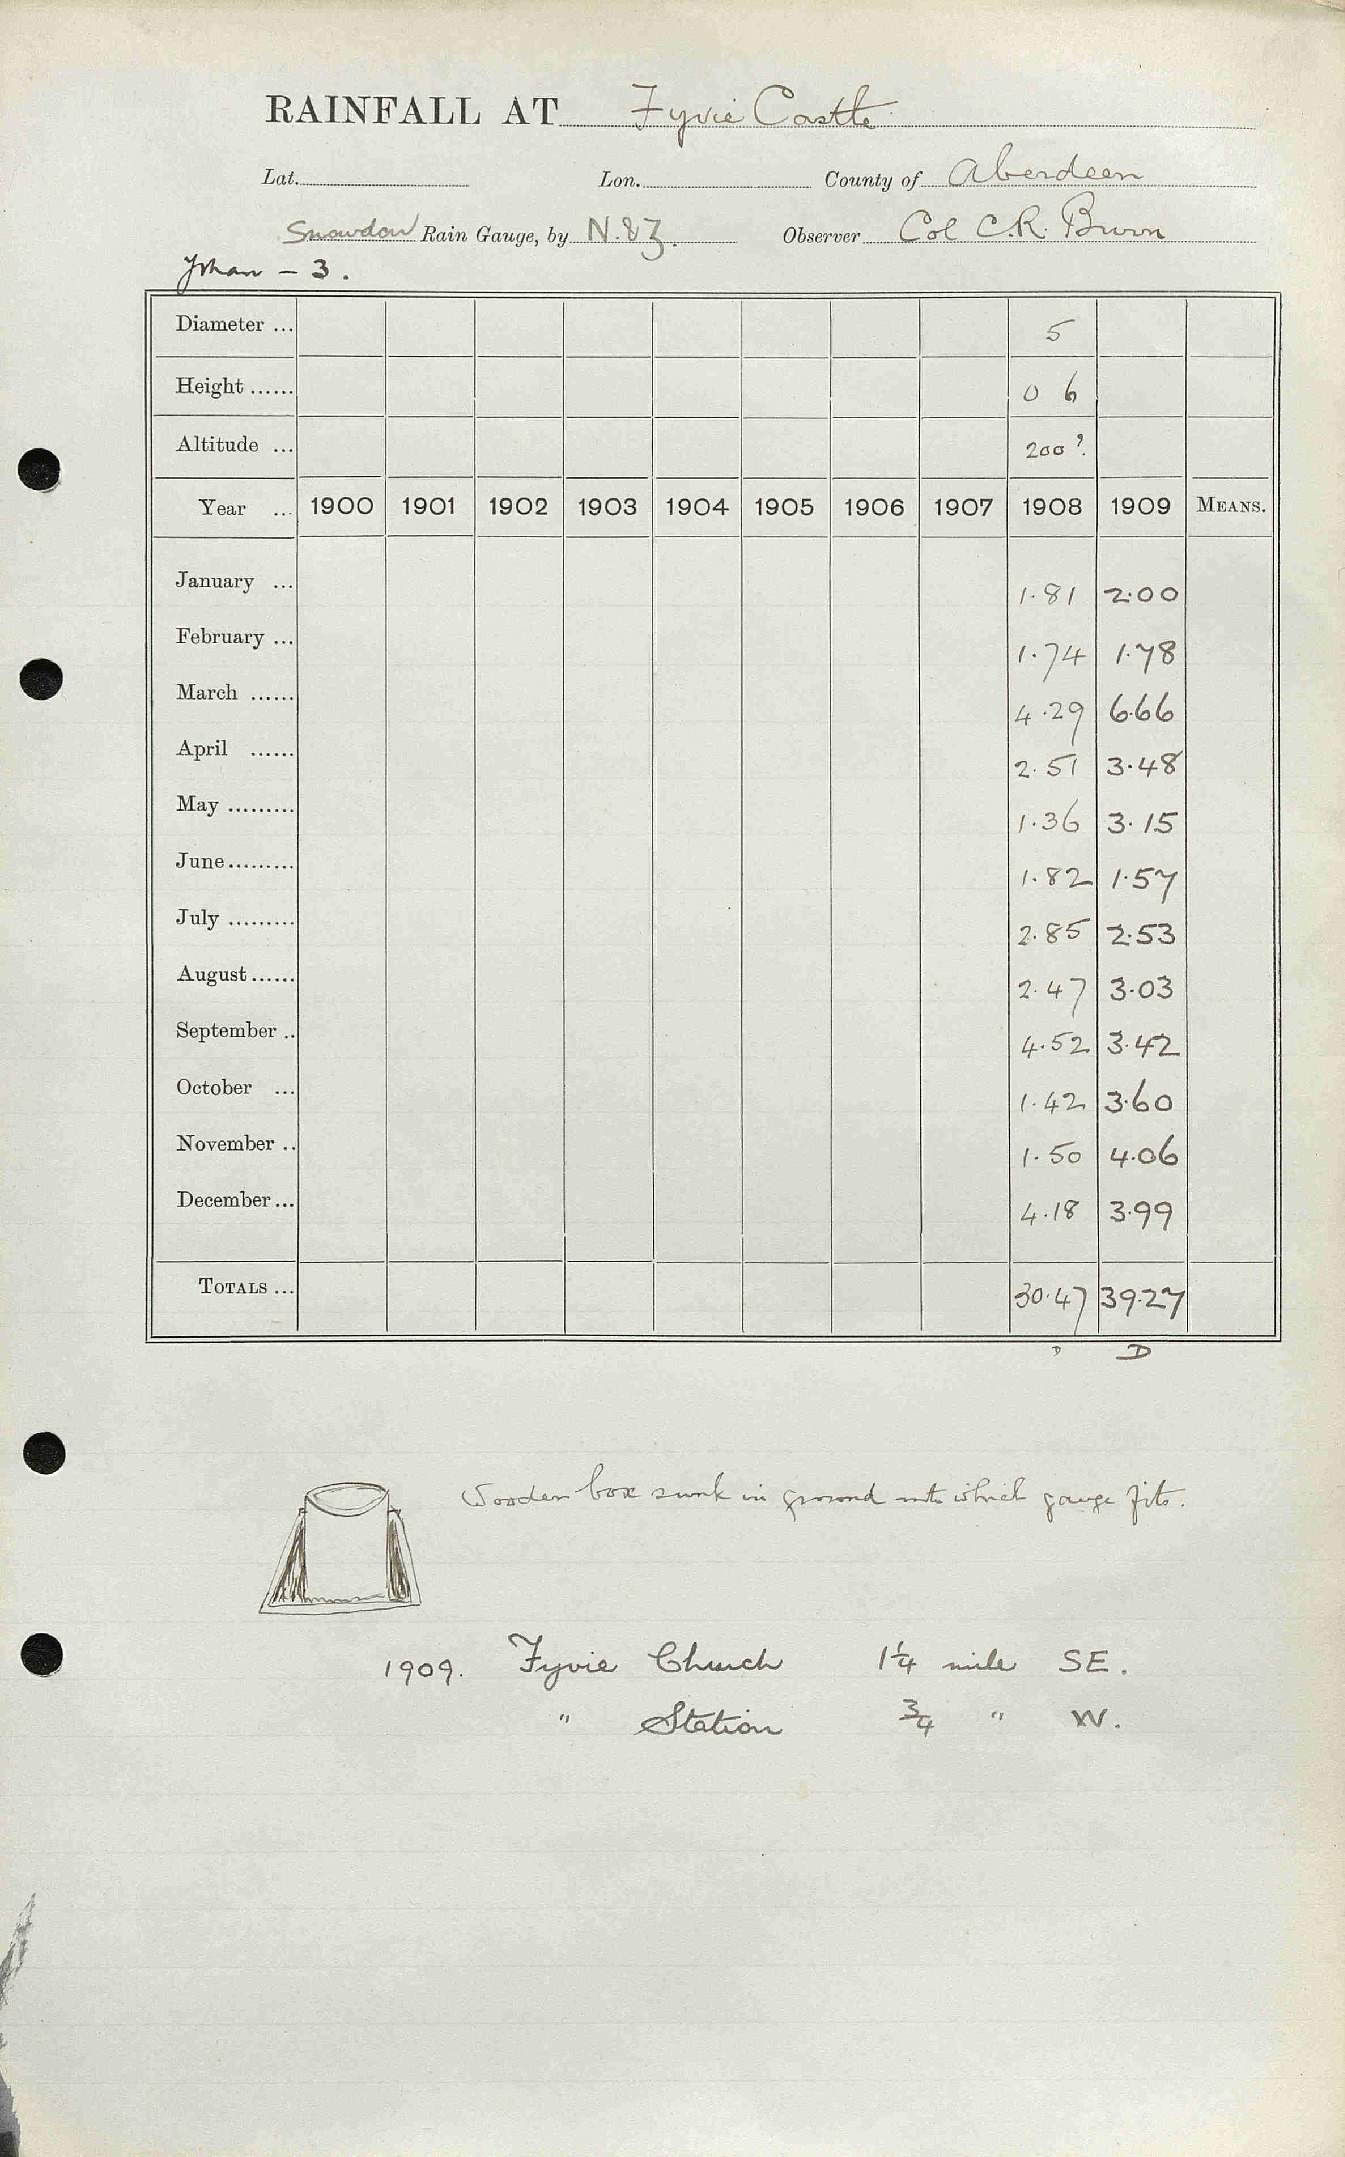 RAINFALL AT Fyvie Castle
Lat. Lon. County of Aberdeen
Snowdon Rain Gauge, by N. & Z. Observer Col C.R. Burn
Ythan - 3.
Diameter ... 5
Height ...... 0 6
Altitude ... 200 ?
Year ... 1900 1901 1902 1903 1904 1905 1906 1907 1908 1909 MEANS.
January ... 1.81 2.00
February ... 1.74 1.78
March ...... 4.29 6.66
April ...... 2.51 3.48
May ......... 1.36 3.15
June ......... 1.82 1.57
July ......... 2.85 2.53
August ...... 2.47 3.03
September .. 4.52 3.42
October ... 1.42 3.60
November .. 1.50 4.06
December ... 4.18 3.99
TOTALS ... 30.47 39.27
D D
Wooden box sunk in ground into which gauge fits.
1909. Fyvie Church 1¼ mile SE.
" Station ¾ " W.